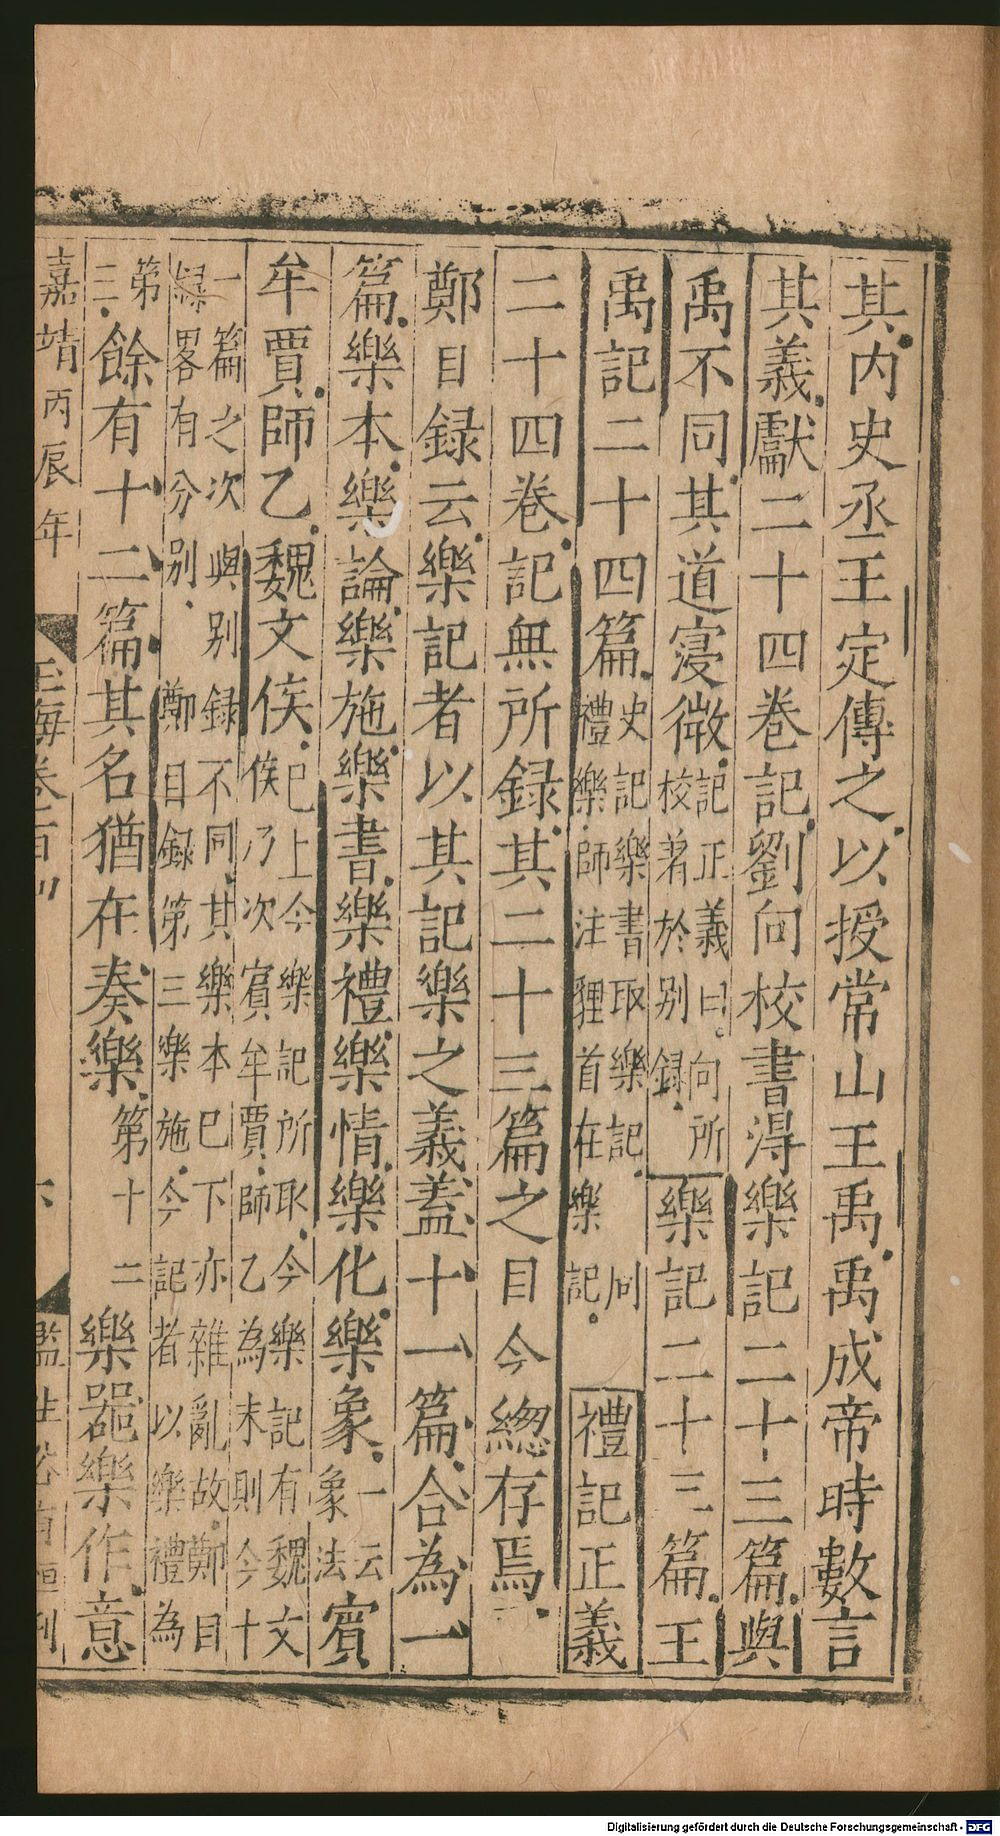 其内史丞王定傳之以授常山王禹禹成帝時數言
其義獻二十四卷記劉向校書得樂記二十三篇與
禹不同其道寖微記正義曰向所校著於别録樂記二十三篇王
禹記二十四篇史記樂書取樂記同禮樂師注貍首在樂記禮記正義
二十四卷記無所録其二十三篇之目今緫存焉
鄭目録云樂記者以其記樂之義蓋十一篇合為一
篇樂本樂論樂施樂書樂禮樂情樂化樂象一云象法賓
牟賈師乙魏文侯已上今樂記所取今樂記有魏文侯乃次賓牟賈師乙為末則今十
一篇之次與别録不同其樂本已下亦雜亂故鄭目録畧有分别鄭目録第三樂施今記者以樂禮為
第三餘有十二篇其名猶在奏樂第十二樂器樂作意
嘉靖丙辰年 玉海卷一百四 六 監生 刋
Digitalisierung gefördert durch die Deutsche Forschungsgemeinschaft - DFG